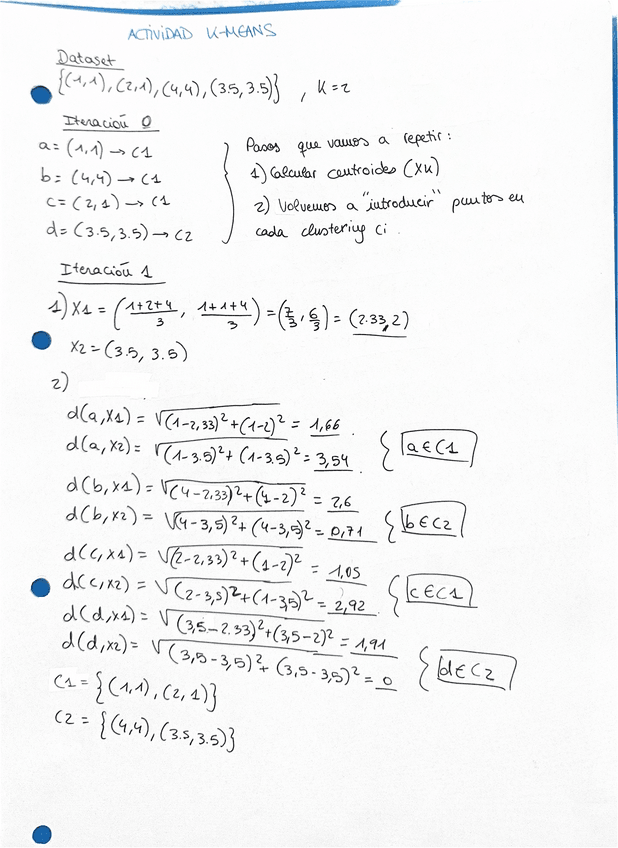 ACTIVIDAD K-MEANS
Dataset
{(1,1), (2,1), (4,4), (3.5, 3.5)} , K=2
Iteración 0
a = (1,1) → C1
b = (4,4) → C1
c = (2,1) → C1
d = (3.5, 3.5) → C2
Pasos que vamos a repetir:
1) Calcular centroides (XK)
2) Volvemos a "introducir" puntos en
cada clustering Ci.
Iteración 1
1) X1 = (1+2+4/3, 1+1+4/3) = (7/3, 6/3) = (2.33, 2)
X2 = (3.5, 3.5)
2)
d(a,X1) = √(1-2,33)²+(1-2)² = 1,66
d(a,X2) = √(1-3.5)²+(1-3.5)² = 3,54
{ a∈C1
d(b,X1) = √(4-2,33)²+(4-2)² = 2,6
d(b,X2) = √(4-3,5)²+(4-3,5)² = 0,71
{ b∈C2
d(c,X1) = √(2-2,33)²+(1-2)² = 1,05
d(c,X2) = √(2-3,5)²+(1-3,5)² = 2,92
{ c∈C1
d(d,X1) = √(3,5-2.33)²+(3,5-2)² = 1,91
d(d,X2) = √(3,5-3,5)²+(3,5-3,5)² = 0
{ d∈C2
C1 = {(1,1), (2,1)}
C2 = {(4,4), (3.5, 3.5)}